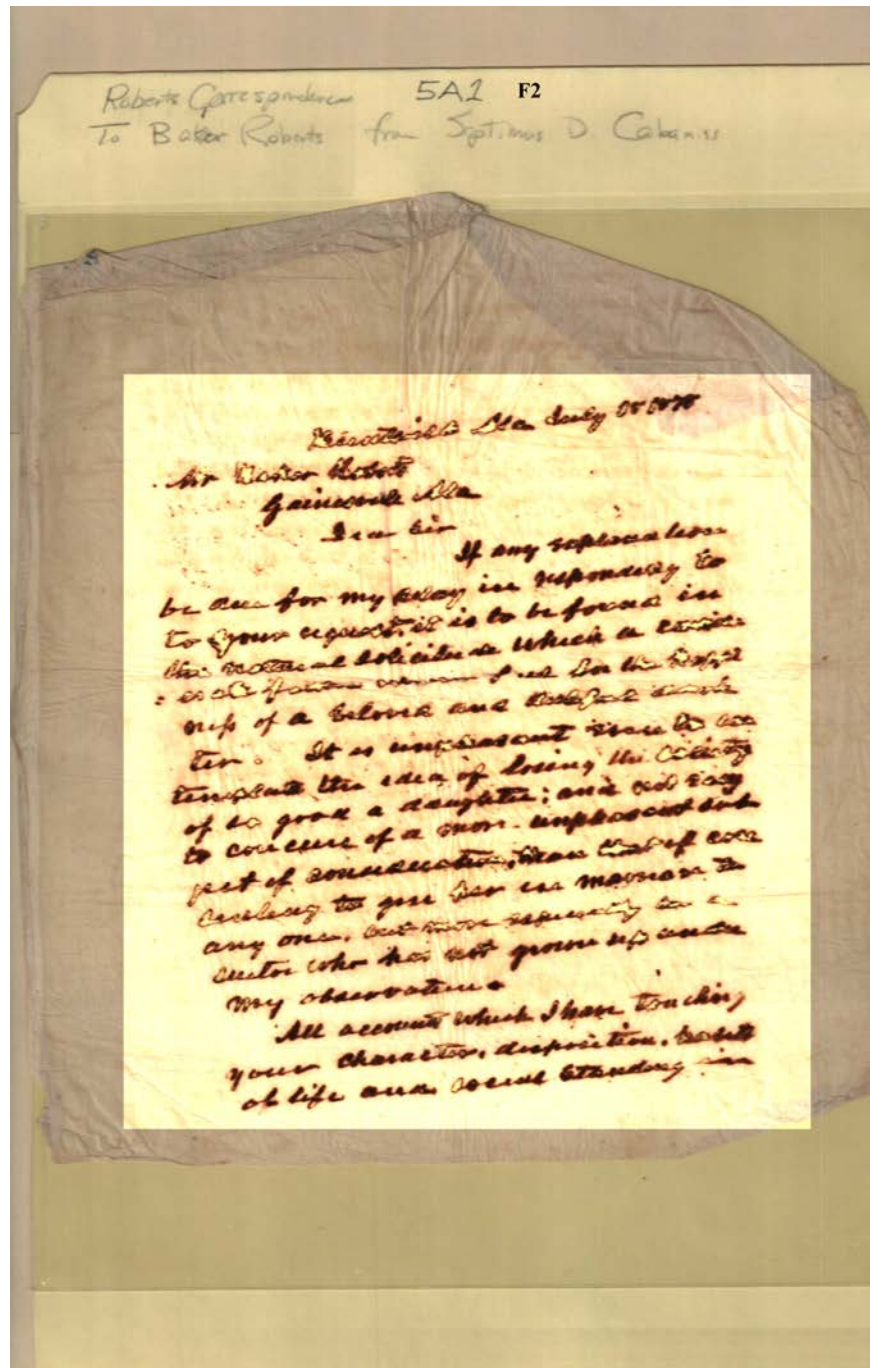 Roberts Correspondence 5A1 F2
To Baker Roberts from Septimus D. Cabaniss
Ala July
Mr Baker Roberts
Gainesville Ala
Dear Sir
If any explanation
be due for my delay in responding to
to your request, it is to be found in
the natural solicitude which a
for the happi
ness of a beloved and
ter. It is unpleasant even to con
template the idea of losing the society
of so good a daughter; and not easy
to conceive of a more unpleasant sub
ject of consideration, than that of con
senting to give her in marriage to
any one, but more especially to a
suitor who has not grown up under
my observation.
All account which I have touching
your character, disposition, habits
of life and social standing in